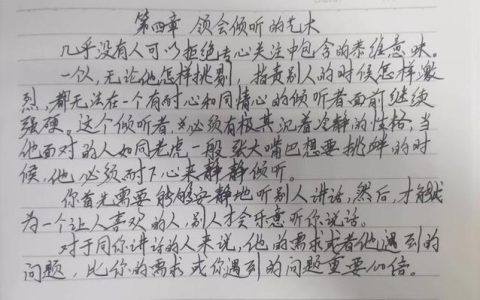 第四章 领会倾听的艺术
几乎没有人可以拒绝专心关注中包含的恭维意味。
一个人,无论他怎样挑剔,指责别人的时候怎样激
烈,都无法在一个有耐心和同情心的倾听者面前继续
强硬。这个倾听者,必须有极其沉着冷静的性格,当
他面对的人如同老虎一般张大嘴巴想要挑衅的时
候,他必须耐下心来静静倾听。
你首先需要能够安静地听别人讲话,然后,才能成
为一个让人喜欢的人,别人才会乐意听你说话。
对于同你讲话的人来说,他的需求或者他遇到的
问题,比你的需求或你遇到的问题重要100倍。